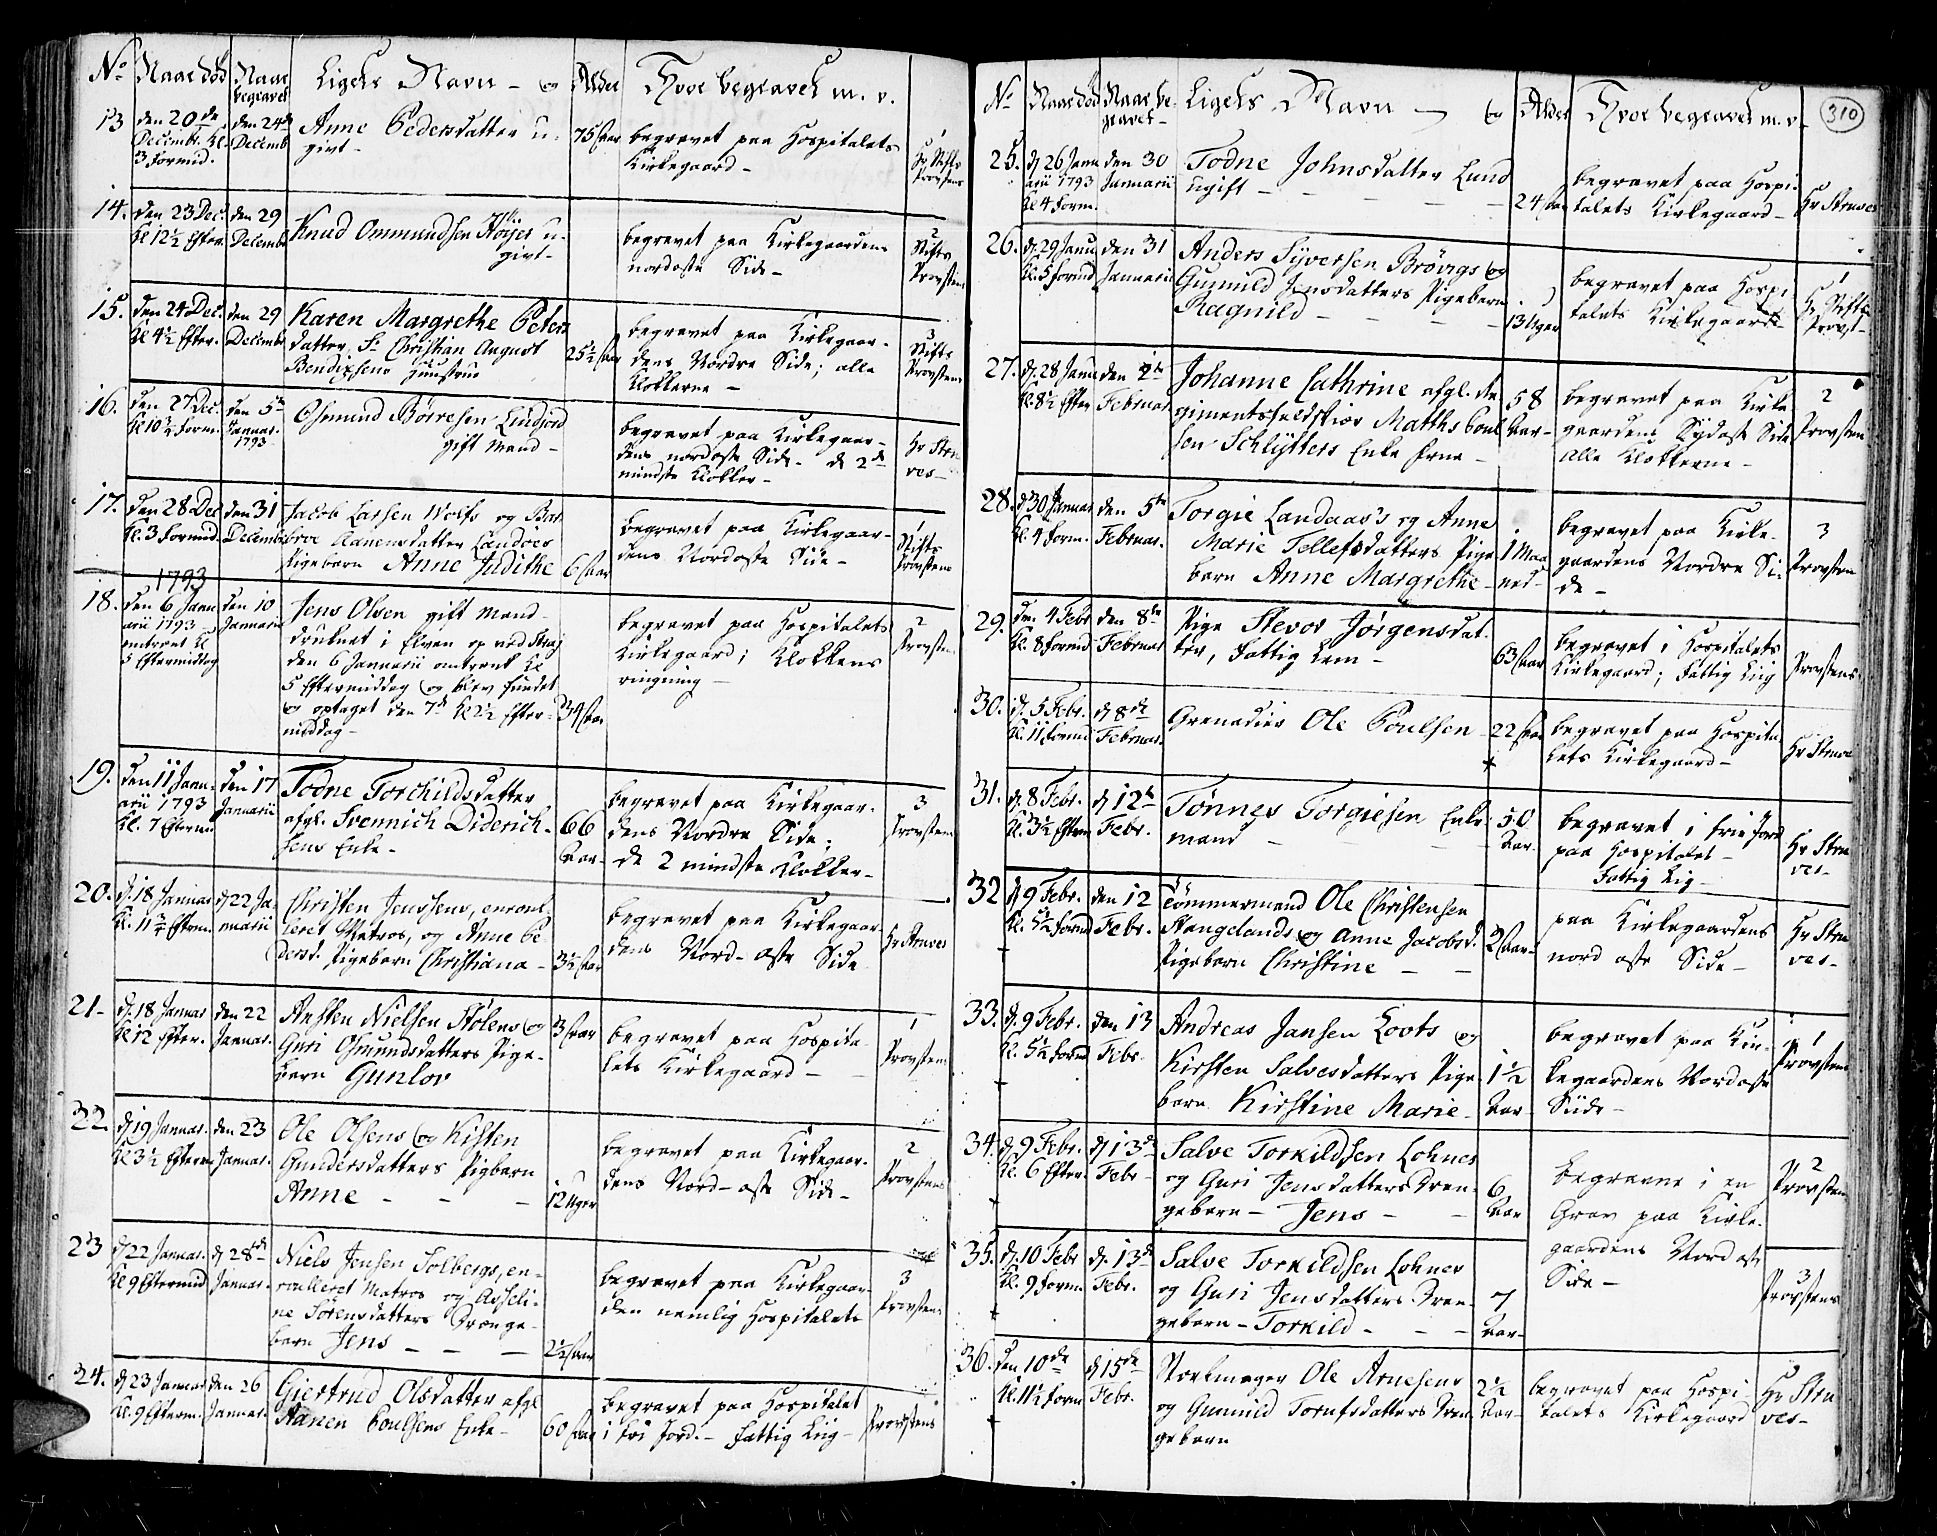 No Naar død Naar begravet Ligets Navn - og Alder Hvor begravet m. v.
13 den 20de Decembr. Kl. 3 Formid. den 24de Decemb Anne Pedersdatter u-
givt - 75 Aar begravet paa Hospitalets
Kirkegaard - 1 Hr Stifts Provstens
14. den 23 Dec. Kl 12½ Efter. den 29 Decembr Knud Ommundsen Høijer u-
givt - begravet paa Kirkegaardens
nordoste Side - 2 Stifts Provstens
15. den 24 Dec. Kl 4½ Efter. den 29 Decembr Karen Margrethe Peters
datter, Sr Christian August
Bendixsens Huustrue 25½ Aar begravet paa Kirkegaar-
dens Nordre Side; alle
Klokkerne - 3 Stifts Provstens
16. den 27 Dec. Kl 10½ Form. den 5te Januar. 1793 Osmund Børresen Lindjord
gift Mand - begravet paa Kirkegaar-
dens nordoste Side - de 2de
mindste Klokker - Hr Stru
ves -
17. den 28 Dec Kl. 3 Formid. den 31 Decembr Jacob Larsen Wolfs og Bar
broe Aanensdatter Landoes
Pigebarn Anne Judithe 6 Aar begravet paa Kirkegaar-
dens Nordoste Side - 1 Stifts Provstens
1793
18. den 6 Janu
arii 1793
omtrent Kl
5 Eftermiddag den 10 Januarii Jens Olsen gift Mand -
druknet i Elven
den 6 Januarii omtrent Kl
5 Eftermiddag og blev fundet
og optaget den 7de Kl 2½ Efter-
middag - 34 Aar begravet paa Hospitalets
Kirkegaard; Klokkens
ringning - 2 Provstens
19. den 11 Janu-
arii 1793
Kl. 7 Eftermid den 17 Januarii Todne Torchildsdatter
afgl. Svennich Diderich-
sens Enke - 66 Aar - begravet paa Kirkegaar-
dens Nordre Side;
de 2 mindste Klokker - 3 Provstens
20. d. 18 Januar Kl. 11½ Efterm. d 22 Ja-
nuarii Christen Jenssens, enroul
leret Matros, og Anne Pe
dersd. Pigebarn Christiana - 3½ Aar begravet paa Kirkegaar
dens Nord-oste Side Hr Struves
21 - d. 18 Januar Kl 12 Efter. den 22 Januar. Austen Nielsen Stølens og
Guri Osmundsdatters Pige-
barn Gunlov 3 Aar begravet paa Hospita-
lets Kirkegaard - 1 Provstens
22. d 19 Januar. Kl 3½ Efterm. den 23 Januar. Ole Olsens og Kisten
Gundersdatters Pigbarn
Anne - - - 12 Uger begravet paa Kirkegaar-
dens Nord-oste Side - 2 Provstens
23 d 22 Januar. Kl 9 Eftermid d 28de Januar. Niels Jensen Solbergs, en-
roulleret Matros og Asseli-
ne Sørensdatters Drænge-
barn Jens - - - 2½ Aar begravet paa Kirkegaar
den nemlig Hospitalets 3 Provstens
24. d 23 Januar Kl. 9 Efterm. den 26 Januar. Giertrud Olsdatter afgl
Aanen Poulsens Enke - 60 Aar begravet paa Hospitalet
i fri Jord. - Fattig Liig - Provstens
310
No Naar død Naar be-
gravet - Ligets Navn - og Alder Hvor begravet m. v.
25. d 26 Janu
arii 1793
Kl 4 Form. den 30 Januarii Todne Johnsdatter Lund
Ugift - - - - 24 Aar begravet paa Hospi-
talets Kirkegaard - Hr Struves
26. d. 29 Janu Kl. 5 Formd den 31 Januarii Anders Syversen Brøvigs og
Gunnild Jensdatters Pigebarn
Ragnild - - - - 13 Uger begravet paa Hospi
talets Kirkegaard - 1 Hr Stifts
Provst -
27. d. 28 Janu Kl. 8½ Efter den 1te Februar Johanne Cathrine afgl. Re
gimentsfeldskier Matths Poul
sen Schlytters Enke Frue - 58 Aar - begravet paa Kirke
gaardens Sydoste Side
Alle Klokkerne - 2 Provsten
28. d 30 Januar Kl. 4 Form. den 5te Februar. Torgie Landaas's og Anne
Marie Tellefsdatters Pige
barn Anne Margrethe - 1 Maa
ned - begravet paa Kirke-
gaardens Nordre Si-
de - 3 Provsten
29. den 4 Febr Kl. 8 Formid den 8te Februar Pige Siever Jørgensdat
ter, Fattig Lem - 63 Aar begravet i Hospitalets
Kirkegaard; Fattig Liig Provstens.
30. d. 5 Febr. Kl. 11 Formd d 8de Februar. Grenadier Ole Poulsen - 22 Aar begravet paa Hospita
lets Kirkegaard - Hr Struve
31. d. 8 Febr. Kl. 3½ Efterm d 12te Febr. Tønnes Torgiesen Enke
mand - - - 50 Aar - begravet i frie Jord
paa Hospitalet -
Fattig Lig - Hr Stru
ves -
32 d 9 Febr. Kl. 5½ Formd den 12 Febr. Tømmermand Ole Christensen
Stangelands og Anne Jacobsd.
Pigebarn Christine - - 2 Aar - paa Kirkegaardens
nord oste Side - Hr Stru
ves -
33. d. 9 Febr. Kl. 5½ Formd den 13 Febr. Andreas Jansen Loots og
Kirsten Salvesdatters Pige
barn Kirstine Marie - 1½ Aar - begravet paa Kir-
kegaardens Nordoste
Side - 1 Provstens
34. d 9 Febr. Kl. 6 Efter. d 13de Febr - Salve Torkildsen Lohnes
og Guri Jensdatters Dren-
gebarn - Jens - - 6 Aar begravne i en
Grav paa Kirke-
gaardens Nordoste
Side - 2 Provsten
35. d. 10 Febr Kl. 9 Form d. 13de Febr. Salve Torkildsen Lohnes
og Guri Jensdatters Dren-
gebarn - Torkild - - - 7 Aar - 3 Provstens
36. den 10de Kl. 11½ Form d 15de Febr. Ole Arnesens
og Gunnild Torufsdatters Dren
gebarn 2½ Aar - begravet paa Hospi-
talets Kirkegaard Hr Stru
ves -